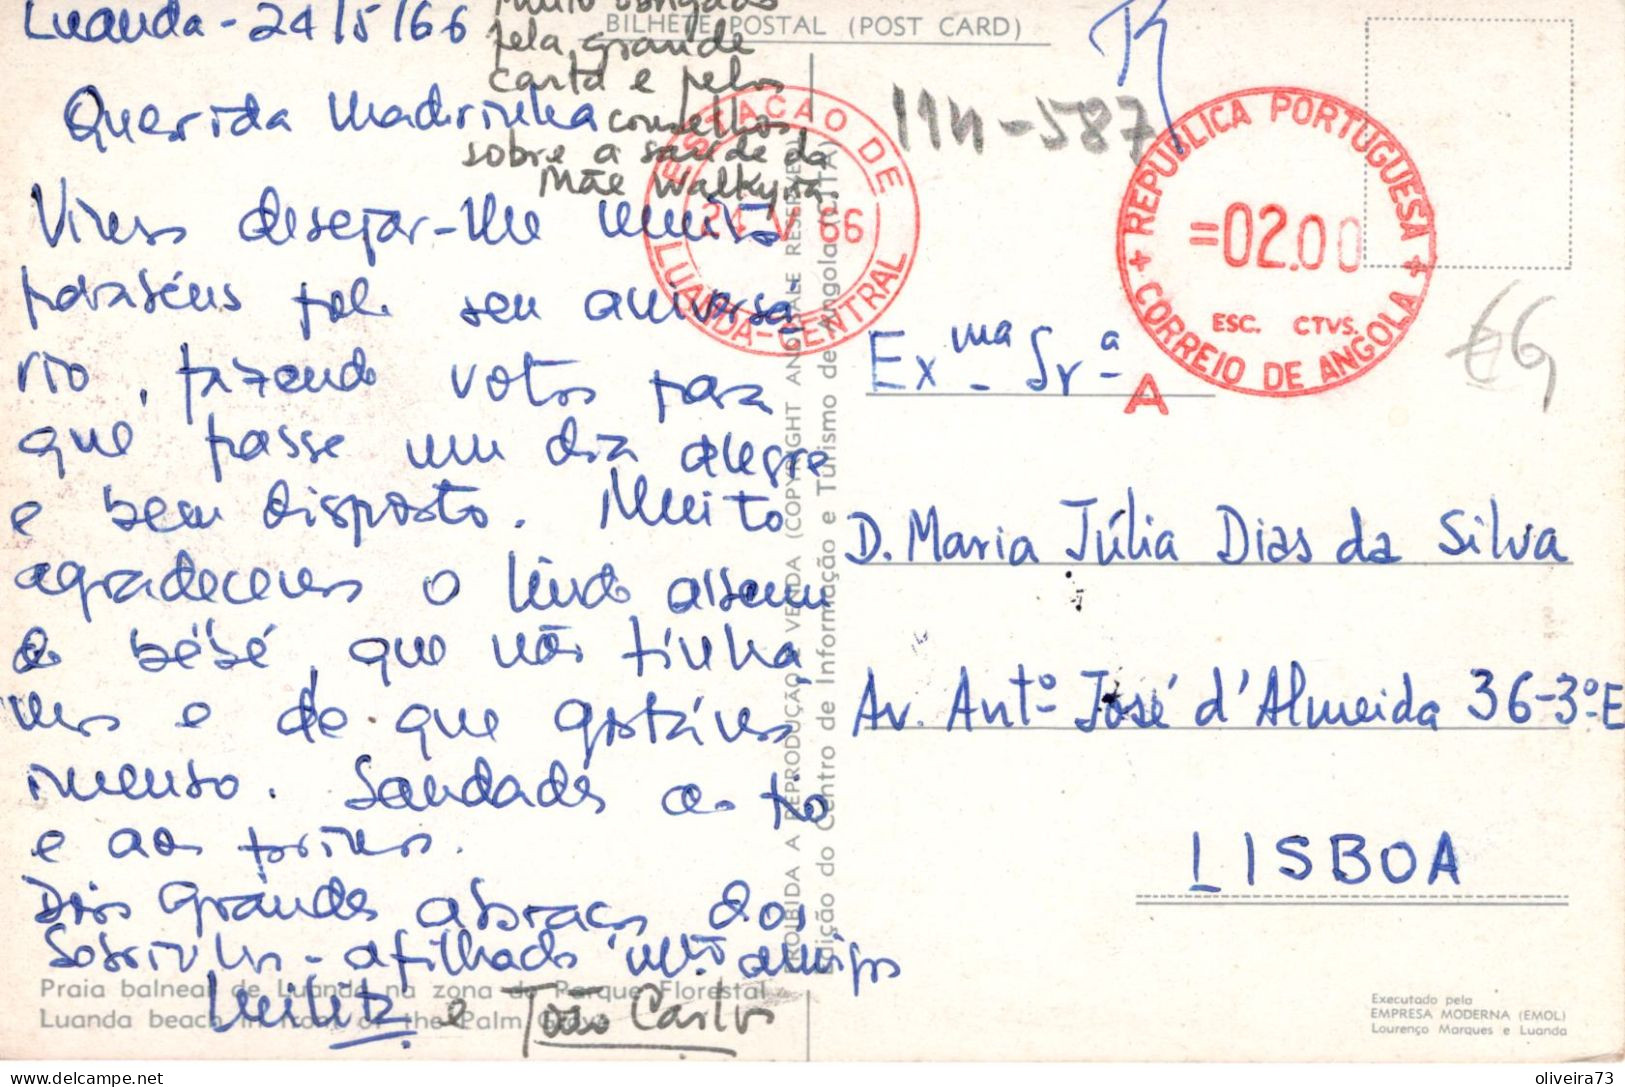 Luanda - 24/5/66
Muito obrigado
pela grande
carta e pelos
conselhos
sobre a saúde da
Mãe Walkyria.
BILHETE POSTAL (POST CARD)
Querida Madrinha
Vimos desejar-lhe muitos
parabéns pelo seu aniversá-
rio, fazendo votos para
que passe um dia alegre
e bem disposto. Muito
agradecemos o lindo
do bébé, que não tínha
mos e de que gostámos
imenso. Saudades ao tio
e aos primos.
Dois grandes abraços dos
Sobrinhos - afilhados muito amigos
e João Carlos
Praia balnear de Luanda na zona do Parque Florestal
Luanda beach in front of the Palm Grove
PROIBIDA A REPRODUÇÃO E VENDA (COPYRIGHT ANGALE RESERVED)
Edição do Centro de Informação e Turismo de Angola (CITA)
ESTAÇÃO DE
24 V 66
LUANDA-CENTRAL
114-587
REPUBLICA PORTUGUESA
=02.00
ESC. CTVS.
CORREIO DE ANGOLA
A
Ex.ma Sr.a
D. Maria Júlia Dias da Silva
Av. Antº José d'Almeida 36-3º-E
LISBOA
Executado pela
EMPRESA MODERNA (EMOL)
Lourenço Marques e Luanda
delcampe.net
oliveira73